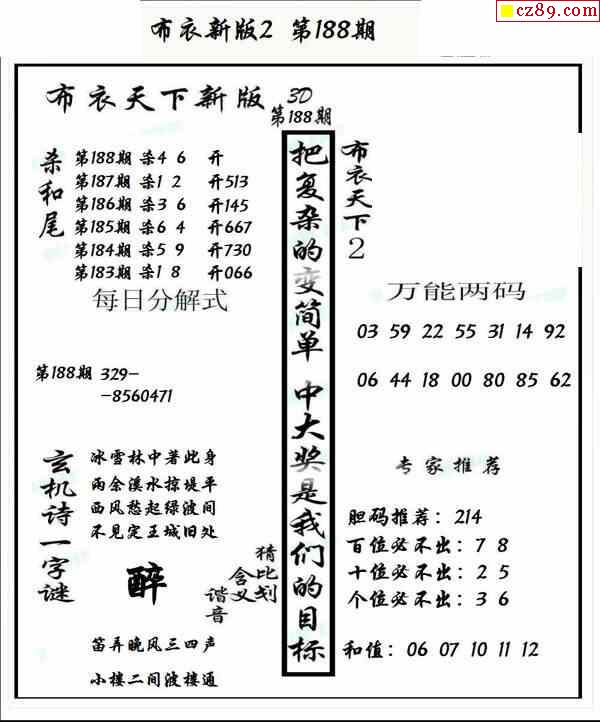 cz89.com
布衣新版2 第188期
布衣天下新版
3D
第188期
杀和尾
第188期 杀4 6 开
第187期 杀1 2 开513
第186期 杀3 6 开145
第185期 杀6 4 开667
第184期 杀5 9 开730
第183期 杀1 8 开066
每日分解式
第188期 329-
-8560471
玄机诗一字谜
冰雪林中著此身
两余溪水掠堤平
西风愁起绿波间
不见定王城旧处
醉
猜比划
含义
谐音
笛弄晚风三四声
小楼二间波楼通
把复杂的变简单 中大奖是我们的目标
布衣天下2
万能两码
03 59 22 55 31 14 92
06 44 18 00 80 85 62
专家推荐
胆码推荐：214
百位必不出：7 8
十位必不出：2 5
个位必不出：3 6
和值：06 07 10 11 12